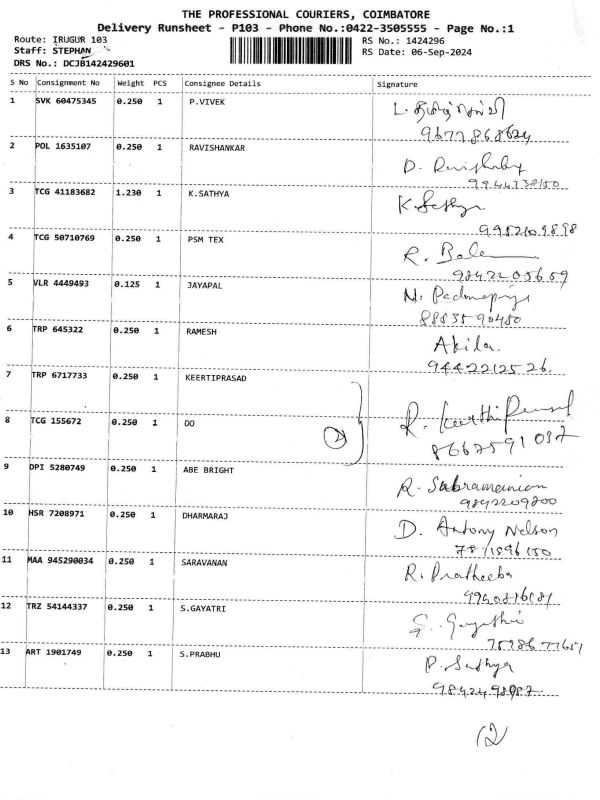 THE PROFESSIONAL COURIERS, COIMBATORE
Delivery Runsheet - P103 - Phone No.:0422-3505555 - Page No.:1
Route: IRUGUR 103
RS No.: 1424296
Staff: STEPHAN
RS Date: 06-Sep-2024
DRS No.: DCJB142429601
S No Consignment No Weight PCS Consignee Details Signature
1 SVK 60475345 0.250 1 P.VIVEK L.
9677868624
2 POL 1635107 0.250 1 RAVISHANKAR D.
9944738150
3 TCG 41183682 1.230 1 K.SATHYA K. Sathya
9952109898
4 TCG 50710769 0.250 1 PSM TEX R. Bala
9842205659
5 VLR 4449493 0.125 1 JAYAPAL M. Padmapriya
8883590480
6 TRP 645322 0.250 1 RAMESH Akila.
9442212526.
7 TRP 6717733 0.250 1 KEERTIPRASAD
8 TCG 155672 0.250 1 DO (2) R. Keerthi Prasad
8667591032
9 DPI 5280749 0.250 1 ABE BRIGHT R. Subramanian
9842209800
10 HSR 7208971 0.250 1 DHARMARAJ D. Antony Nelson
7871896150
11 MAA 945290034 0.250 1 SARAVANAN R. Pratheeba
12 TRZ 54144337 0.250 1 S.GAYATRI G. Gayathri
7598677651
13 ART 1901749 0.250 1 S.PRABHU P. Sathya
9842498987
12